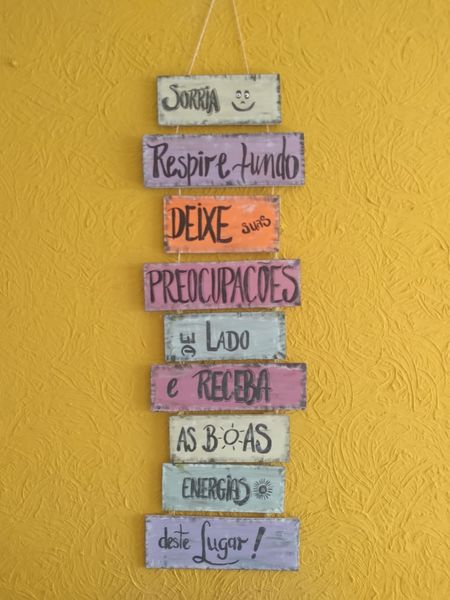 SORRIA
Respire fundo
DEIXE suas
PREOCUPACÕES
DE LADO
e RECEBA
AS BOAS
ENERGIAS
deste Lugar!